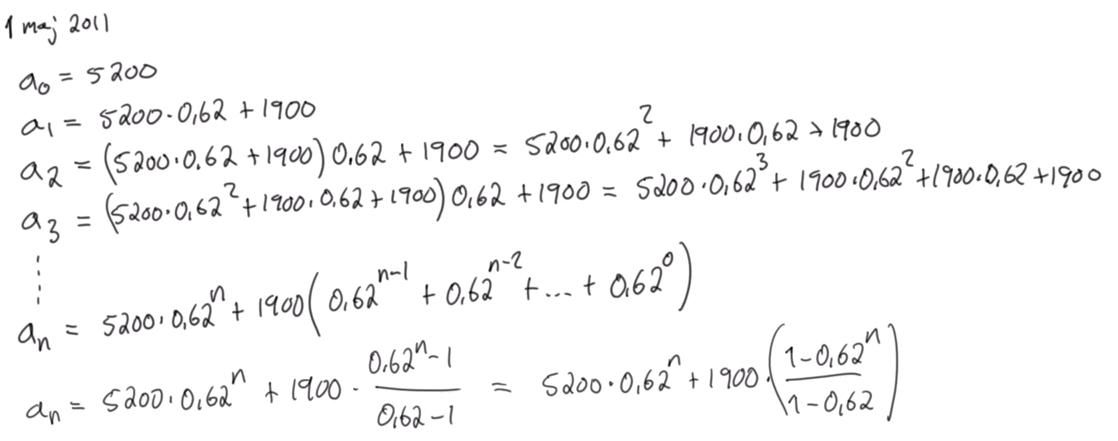 1 maj 2011
a₀ = 5200
a₁ = 5200·0,62 + 1900
a₂ = (5200·0,62 + 1900) 0,62 + 1900 = 5200·0,62² + 1900·0,62 + 1900
a₃ = (5200·0,62² + 1900·0,62 + 1900) 0,62 + 1900 = 5200·0,62³ + 1900·0,62² + 1900·0,62 + 1900
⋮
aₙ = 5200·0,62ⁿ + 1900(0,62ⁿ⁻¹ + 0,62ⁿ⁻² + ... + 0,62⁰)
aₙ = 5200·0,62ⁿ + 1900 · (0,62ⁿ-1)/(0,62-1) = 5200·0,62ⁿ + 1900·((1-0,62ⁿ)/(1-0,62))